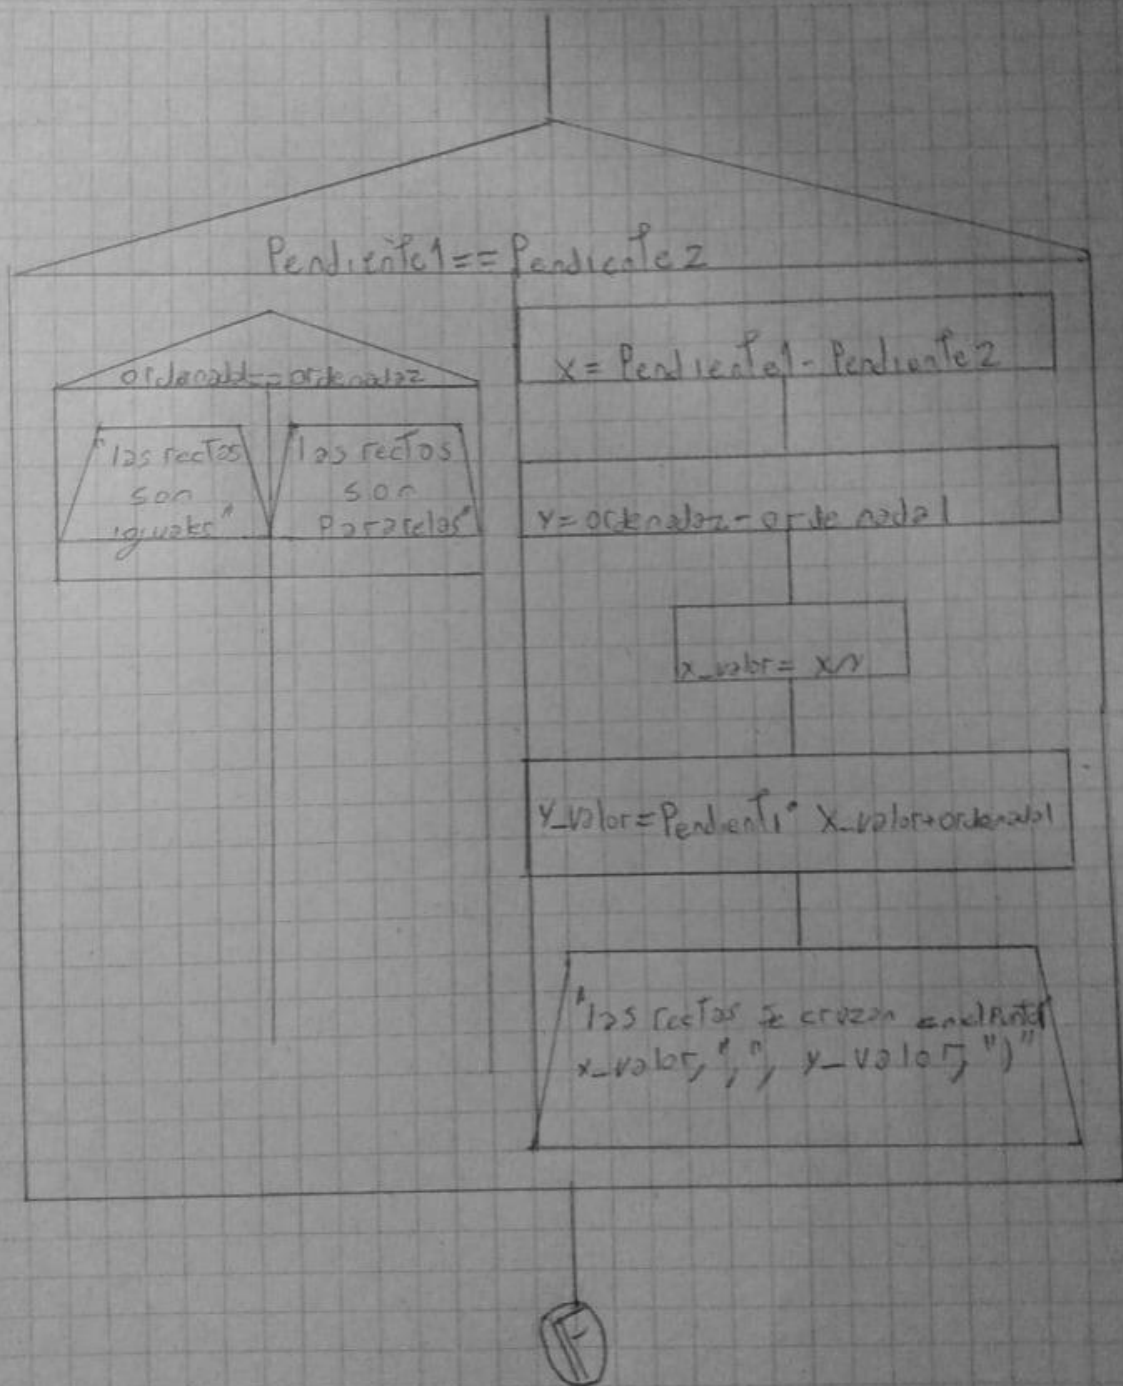 Pendiente1==Pendiente2
ordenada1==ordenada2
"las rectas
son
iguales"
"las rectas
son
Pararelas"
x= Pendiente1-Pendiente2
y=ordenada2-ordenada1
x_valor=
y_valor=Pendient1* x_valor+ordenada1
"las rectas se cruzan en el
x_valor,",", y_valor,")"
F